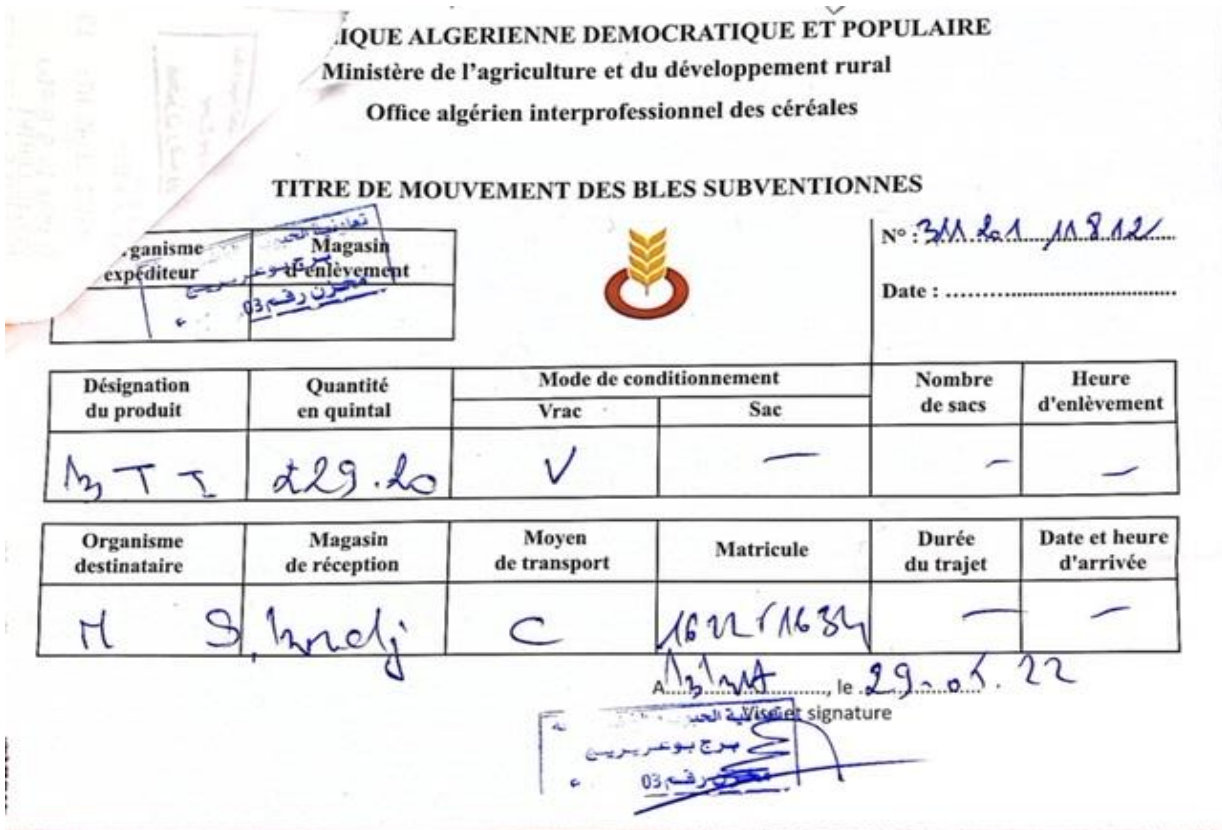 IQUE ALGERIENNE DEMOCRATIQUE ET POPULAIRE
Ministère de l'agriculture et du développement rural
Office algérien interprofessionnel des céréales
TITRE DE MOUVEMENT DES BLES SUBVENTIONNES
ganisme expéditeur
Magasin d'enlèvement
برج بوعريريج
مخزن رقم 03
N° : 311201 11812
Date :
Désignation du produit
Quantité en quintal
Mode de conditionnement
Vrac
Sac
Nombre de sacs
Heure d'enlèvement
229.20
V
—
—
—
Organisme destinataire
Magasin de réception
Moyen de transport
Matricule
Durée du trajet
Date et heure d'arrivée
M S
C
—
—
A, le 29-05.22
Visa et signature
برج بوعريريج
مخزن رقم 03